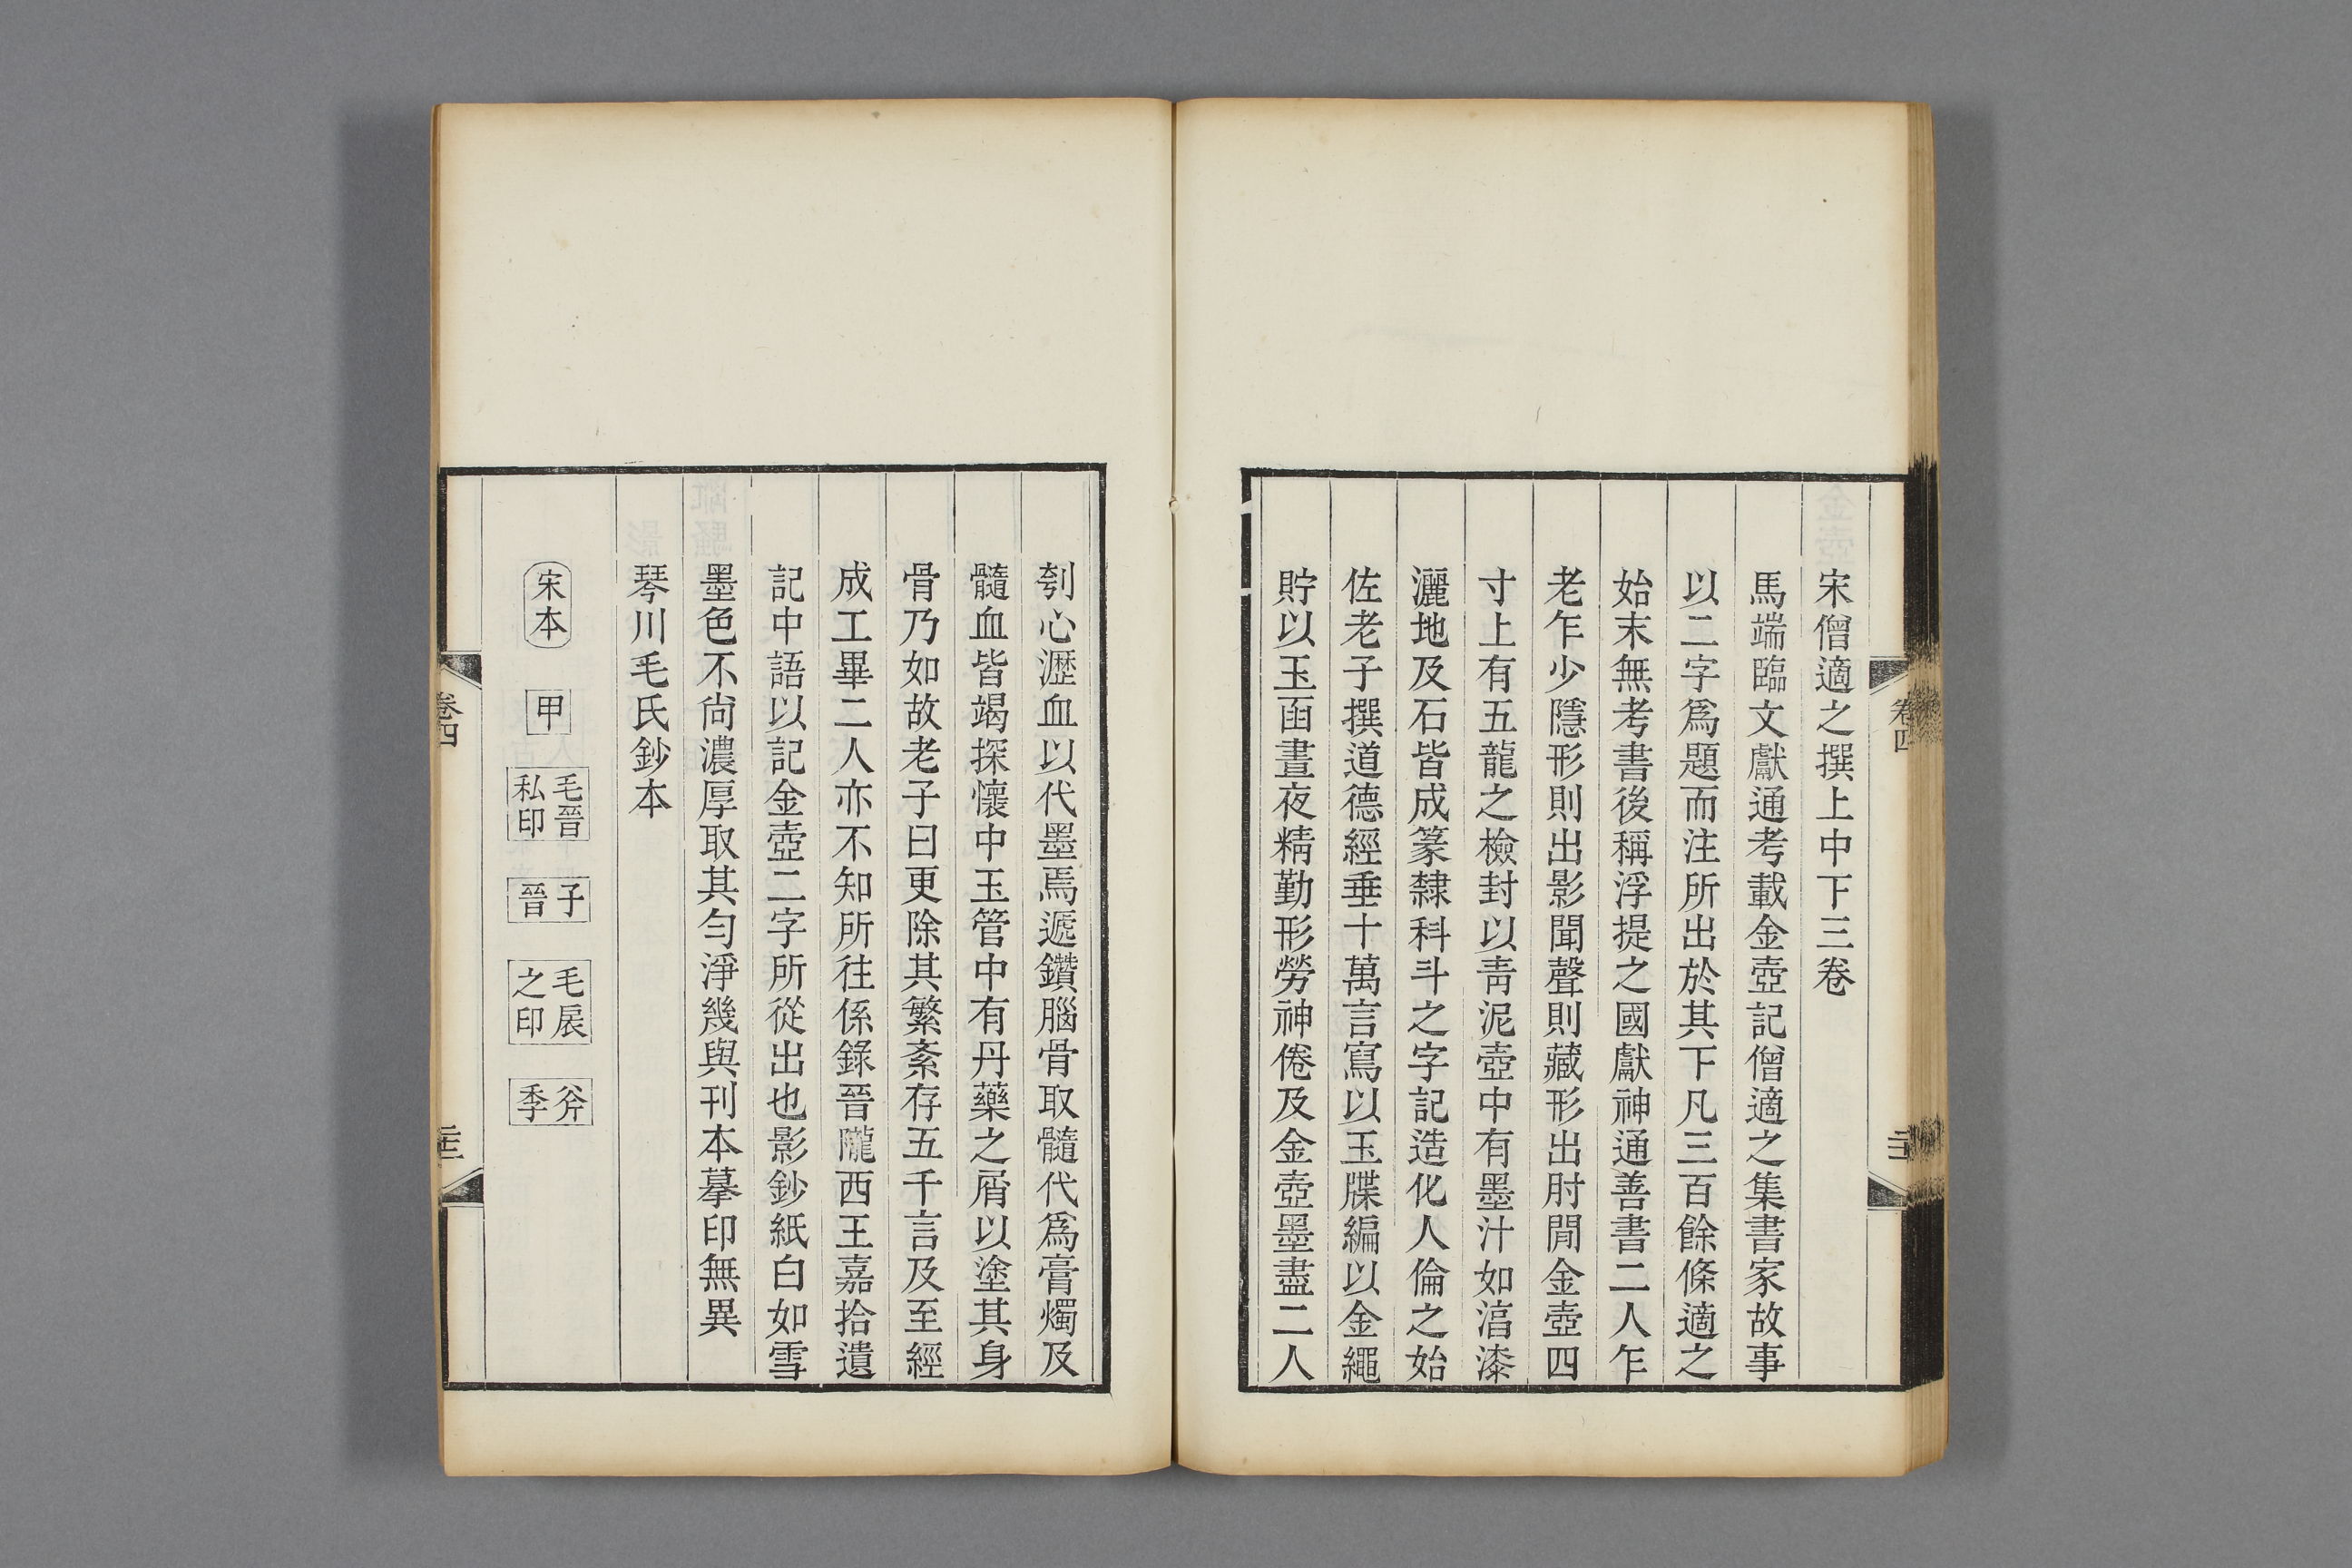 宋僧適之撰上中下三卷
馬端臨文獻通考載金壺記僧適之集書家故事
以二字爲題而注所出於其下凡三百餘條適之
始末無考書後稱浮提之國獻神通善書二人乍
老乍少隱形則出影聞聲則藏形出肘閒金壺四
寸上有五龍之檢封以靑泥壺中有墨汁如湻漆
灑地及石皆成篆隸科斗之字記造化人倫之始
佐老子撰道德經垂十萬言寫以玉牒編以金繩
貯以玉函晝夜精勤形勞神倦及金壺墨盡二人
刳心瀝血以代墨焉遞鑽腦骨取髓代爲膏燭及
髓血皆竭探懷中玉管中有丹藥之屑以塗其身
骨乃如故老子曰更除其繁紊存五千言及至經
成工畢二人亦不知所往係錄晉隴西王嘉拾遺
記中語以記金壺二字所從出也影鈔紙白如雪
墨色不尙濃厚取其勻淨幾與刊本摹印無異
琴川毛氏鈔本
宋本
甲
毛晉私印
子晉
毛扆之印
斧季
卷四
卷四